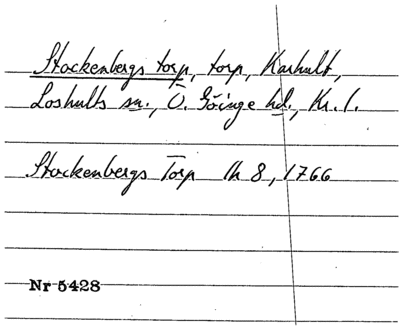 Stackenbergs torp, torp, Karhult,
Loshults sn., Ö. Göinge hd., Kr. l.
Stackenbergs Torp lh 8, 1766
Nr 5428